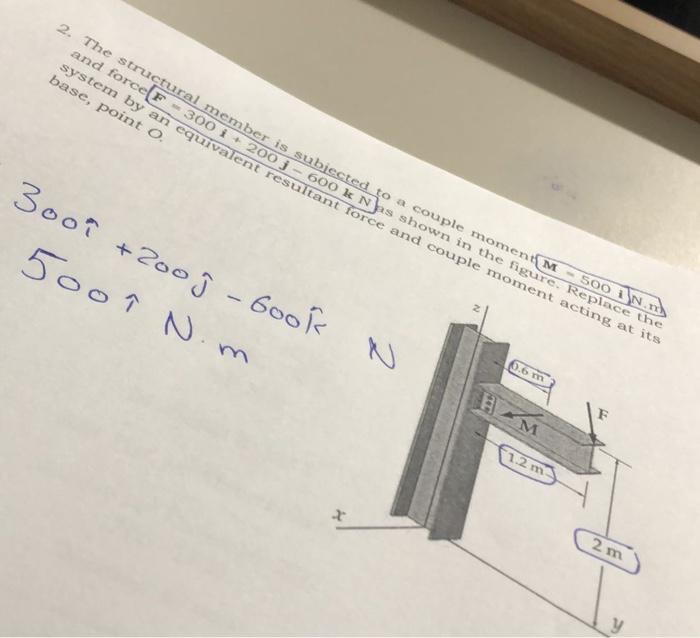 2. The structural member is subjected to a couple moment M = 500 i N.m
and force F = 300 i + 200 j – 600 k N as shown in the figure. Replace the
system by an equivalent resultant force and couple moment acting at its
base, point O.
300î + 200ĵ - 600k̂ N
500î N.m
z
0.6 m
F
M
1.2 m
x
2 m
y